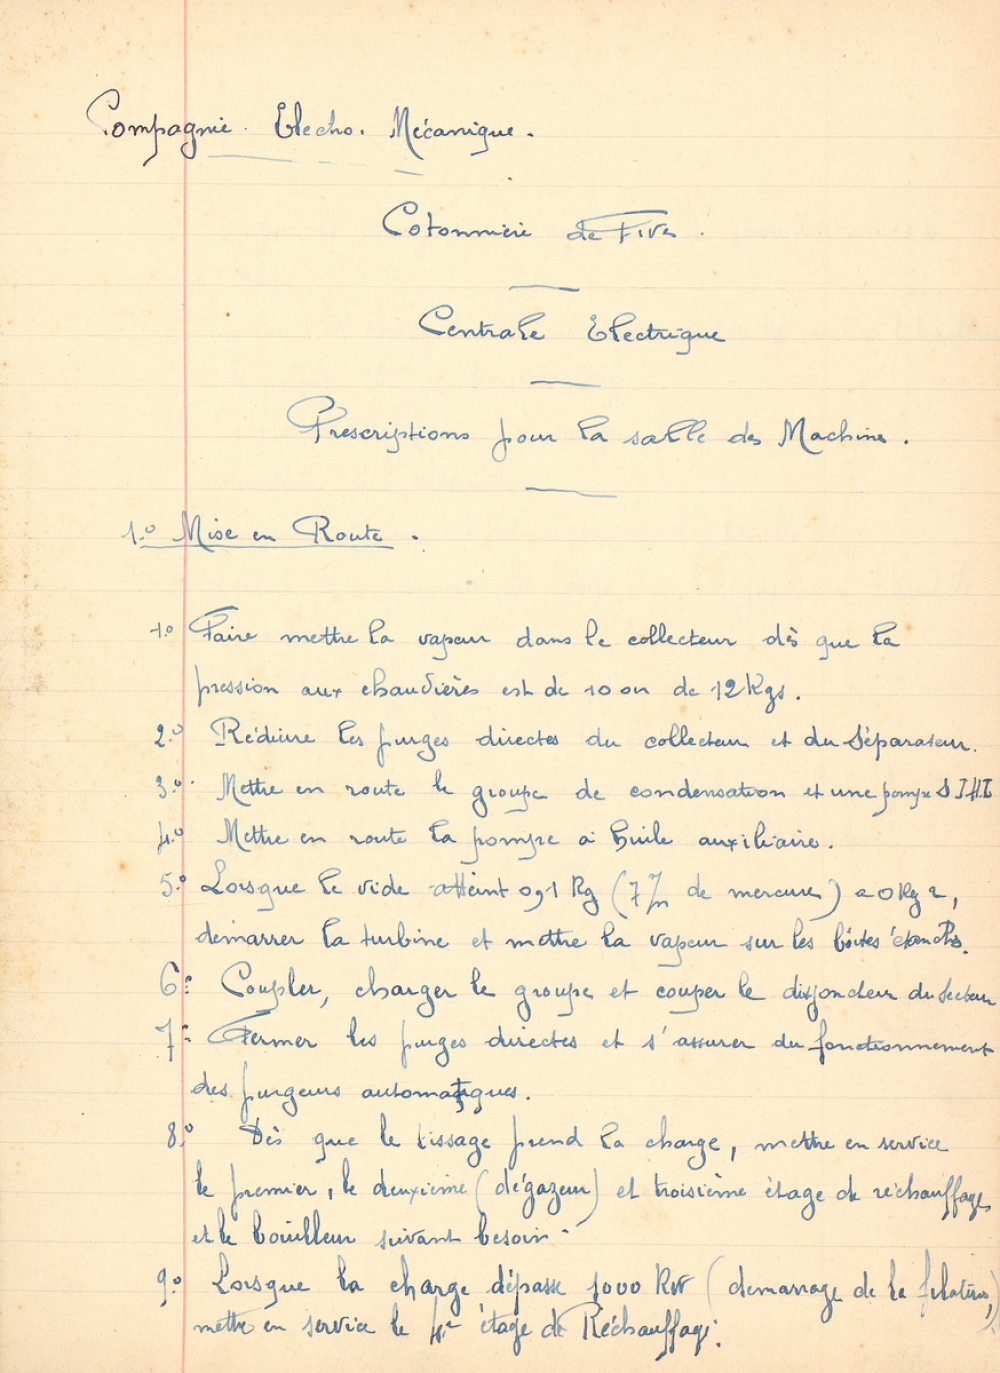 Compagnie Electro. Mécanique.
Cotonnière de Fives.
Centrale Electrique
Prescriptions pour la salle des Machines.
1.º Mise en Route.
1.º Faire mettre la vapeur dans le collecteur dès que la
pression aux chaudières est de 10 ou de 12 Kgs.
2.º Réduire les purges directes du collecteur et du Séparateur.
3.º Mettre en route le groupe de condensation et une pompe S I H I
4.º Mettre en route la pompe a huile auxiliaire.
5.º Lorsque le vide atteint 0,1 Kg (7 c/m de mercure) a 0 Kg 2,
démarrer la turbine et mettre la vapeur sur les boîtes étanches.
6.º Coupler, charger le groupe et couper le disjoncteur du secteur
7.º Fermer les purges directes et s'assurer du fonctionnement
des purgeurs automatiques.
8.º Dès que le tissage prend la charge, mettre en service
le premier, le deuxième (dégazeur) et troisième étage de réchauffage
et le bouilleur suivant besoin.
9.º Lorsque la charge dépasse 1000 KW (demarrage de la filature,)
mettre en service le 4e étage de Réchauffage.